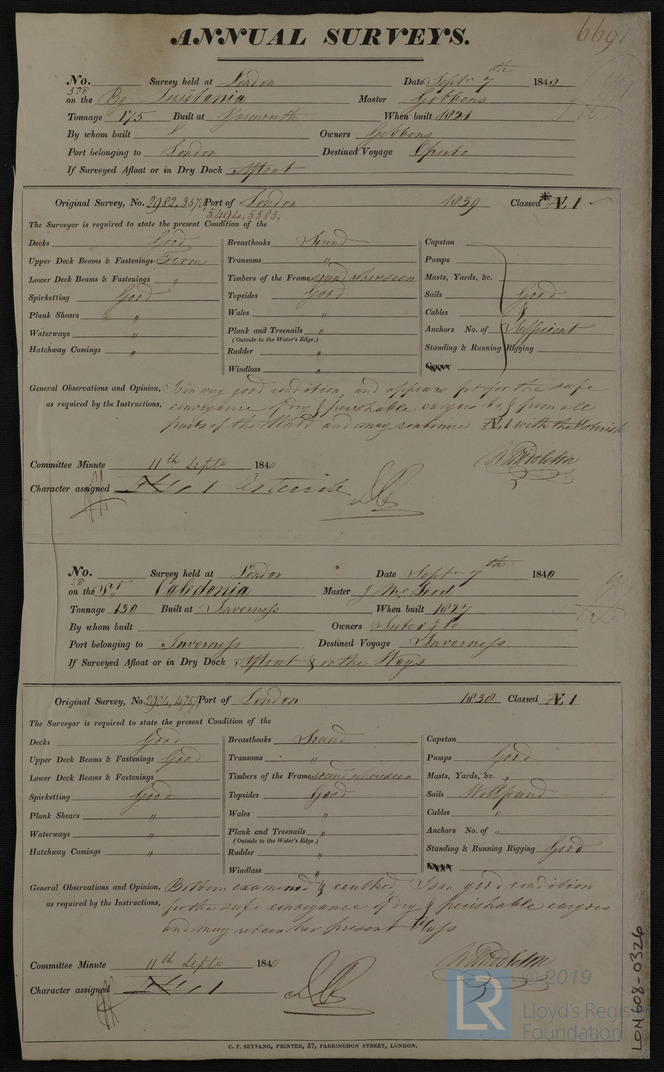 669
ANNUAL SURVEYS.
No. 528 Survey held at London Date Septr 7th 1840
on the Bg Lusitania Master Gibbons
Tonnage 175 Built at Yarmouth When built 1821
By whom built Owners Gibbons
Port belonging to London Destined Voyage Oporto
If Surveyed Afloat or in Dry Dock Afloat
Original Survey, No. 2982, 3573 Port of London 1839 Classed * Æ 1
5494, 5583,
The Surveyor is required to state the present Condition of the
Decks Good Breasthooks Sound Capstan
Upper Deck Beams & Fastenings Firm Transoms " Pumps
Lower Deck Beams & Fastenings " Timbers of the Frame sound where seen Masts, Yards, &c.
Spirketting Good Topsides Good Sails Good
Plank Shears " Wales " Cables &
Waterways " Plank and Treenails " Anchors No. of Sufficient
(Outside to the Water's Edge.)
Hatchway Comings " Rudder " Standing & Running Rigging
Windlass "
General Observations and Opinion, Is in very good condition, and appears fit for the safe
as required by the Instructions, conveyance of dry & perishable cargoes to & from all
parts of the World and may continue Æ 1 with the Asterisk
Committee Minute 11th Septr 1840
Character assigned Æ 1 Asterisk
No. 28 Survey held at London Date Septr 7th 1840
on the Sr Caledonia Master J McLeod
Tonnage 130 Built at Inverness When built 1827
By whom built Owners Suter & Co
Port belonging to Inverness Destined Voyage Inverness
If Surveyed Afloat or in Dry Dock Afloat & on the Ways
Original Survey, No. 2904, 4757 Port of London 1838 Classed Æ 1
The Surveyor is required to state the present Condition of the
Decks Good Breasthooks Sound Capstan
Upper Deck Beams & Fastenings Good Transoms " Pumps Good
Lower Deck Beams & Fastenings Timbers of the Frame sound where seen Masts, Yards, &c. "
Spirketting Good Topsides Good Sails Well found
Plank Shears " Wales " Cables "
Waterways " Plank and Treenails " Anchors No. of "
(Outside to the Water's Edge.)
Hatchway Comings " Rudder " Standing & Running Rigging Good
Windlass "
General Observations and Opinion, Bottom examined & caulked, Is in good condition
as required by the Instructions, for the safe conveyance of dry & perishable cargoes
and may retain her present Class
Committee Minute 11th Septr 1840
Character assigned Æ 1
C. F. SEYFANG, PRINTER, 57, FARRINGDON STREET, LONDON.
LON 608-0326
LR © 2019
Lloyd's Register
Foundation